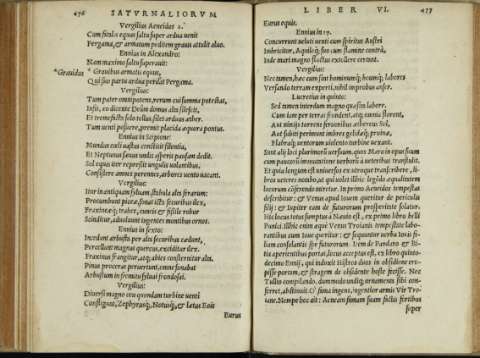 476 SATVRNALIORVM
Vergilius Aeneidos 2.
Cum fatalis equus saltu super ardua venit
Pergama, & armatum peditem grauis attulit aluo.
Ennius in Alexandro:
Nam maximo saltu superauit
*Grauidus * Grauibus armatis equus,
Qui suo partu ardua perdat Pergama.
Vergilius:
Tum pater omnipotens, rerum cui summa potestas,
Infit, eo dicente Deûm domus alta silescit,
Et tremefacta solo tellus silet arduus æther.
Tum venti posuere, premit placida æquora pontus.
Ennius in Scipione:
Mundus cæli vastus constitit silentio,
Et Neptunus sæuus vndis asperis pausam dedit.
Sol equis iter repressit vngulis volantibus,
Consistere amnes perennes, arbores vento vacant.
Vergilius:
Itur in antiquam syluam stabula alta ferarum:
Procumbunt piceæ, sonat icta securibus ilex,
Fraxineæq; trabes, cuneis & fissile robur
Scinditur, aduoluunt ingentes montibus ornos.
Ennius in sexto:
Incedunt arbusta per alta securibus cædunt,
Percellunt magnas quercus, exciditur ilex.
Fraxinus frangitur, atq; abies consternitur alta.
Pinus proceras peruertunt, omne sonabat
Arbustum in fremitu syluai frondosai.
Vergilius:
Diuersi magno ceu quondam turbine venti
Confligunt, Zephyrusq;, Notusq;, & lætus Eois
Eurus
LIBER VI. 477
Eurus equis.
Ennius in 17.
Concurrunt veluti venti cum spiritus Austri
Imbricitor, Aquiloq; suo cum flamine contra,
Inde mari magno fluctus excellere certant.
Vergilius:
Nec tamen, hæc cum sint hominumq; boumq; labores
Versando terram experti, nihil improbus anser.
Lucretius in quinto:
Sed tamen interdum magno quæsita labore.
Cum iam per terras frondent, atq; omnia florent,
Aut nimiis torrens feruoribus ætherius Sol,
Aut subiti perimunt imbres gelidæq; pruinæ,
Flabraq; ventorum violento turbine vexant.
Sunt alij loci plurimorum versuum, quos Maro in opus suum
cum paucorum immutatione verborum à veteribus transtulit.
Et quia longum est vniuersos ex vtroque transcribere, libros
veteres notabo, vt qui volet illinc legẽdo æqualitatem
locorum cõferendo miretur. In primo Aeneidos tempestas
describitur: & Venus apud Iouem queritur de periculis
filij: & Iupiter eam de futurorum prosperitate solatur.
Hic locus totus sumptus à Næuio est, ex primo libro belli
Punici. Illic enim æque Venus Troianis tempestate laborantibus
cum Ioue queritur: & sequuntur verba Iouis filiam
consolantis spe futurorum. Item de Pandaro & Bitia
aperientibus portas, locus acceptus est, ex libro quintodecimo
Ennij, qui induxit Histros duos in obsidione erupisse
portam, & stragem de obsidente hoste fecisse. Nec
Tullio compilando, dummodo vndiq; ornamenta sibi conferret,
abstinuit. O fama ingens, ingentior armis Vir Troiane.
Nempe hoc ait: Aeneam famam suam factis fortibus
super